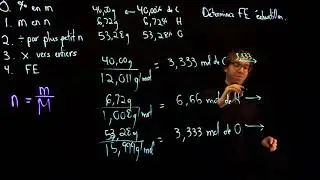 1. % en m
2. ÷ par plus petit n
3. x vers entiers
4. FE
n = m/M
40,00g 40,00% C
6,72g 6,72% H
53,28g 53,28% O
Détermine FE échantillon.
40,00g / 12,011 g/mol = 3,333 mol de C → 3,333
6,72g / 1,008 g/mol = 6,66 mol de H →
53,28g / 15,999 g/mol = 3,333 mol de O →